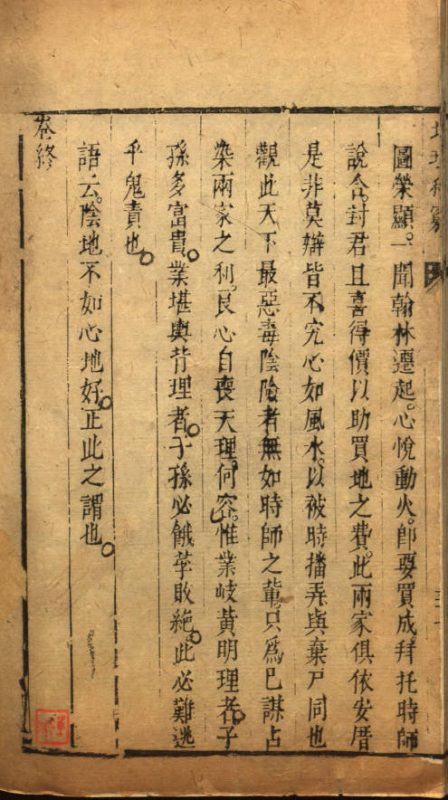 圖榮顯。一聞翰林遷起。心悅動火。即要買成拜托時師
說合。封君且喜得價以助買地之費。此兩家俱依安厝
是非莫辦皆不究心如風水。以被時播弄與棄尸同也
觀此天下最惡毒陰險者無如時師之輩。只為巳謀占
染兩家之利。良心自喪天理。何容。惟業岐黃明理者。子
孫多富貴。業堪輿背理者。子孫必餓莩敗絶。此必難逃
乎鬼責也。
語云。陰地不如心地好。正此之謂也。
卷終